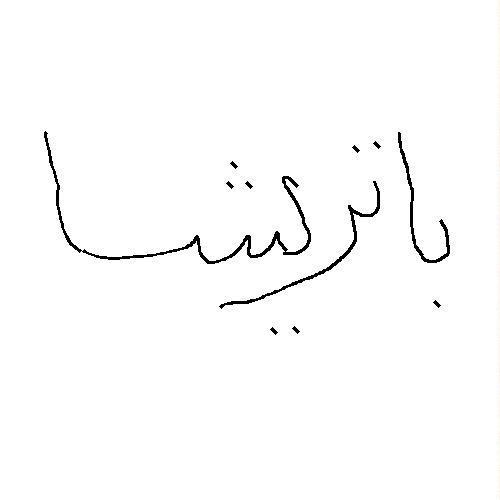 باتريشا